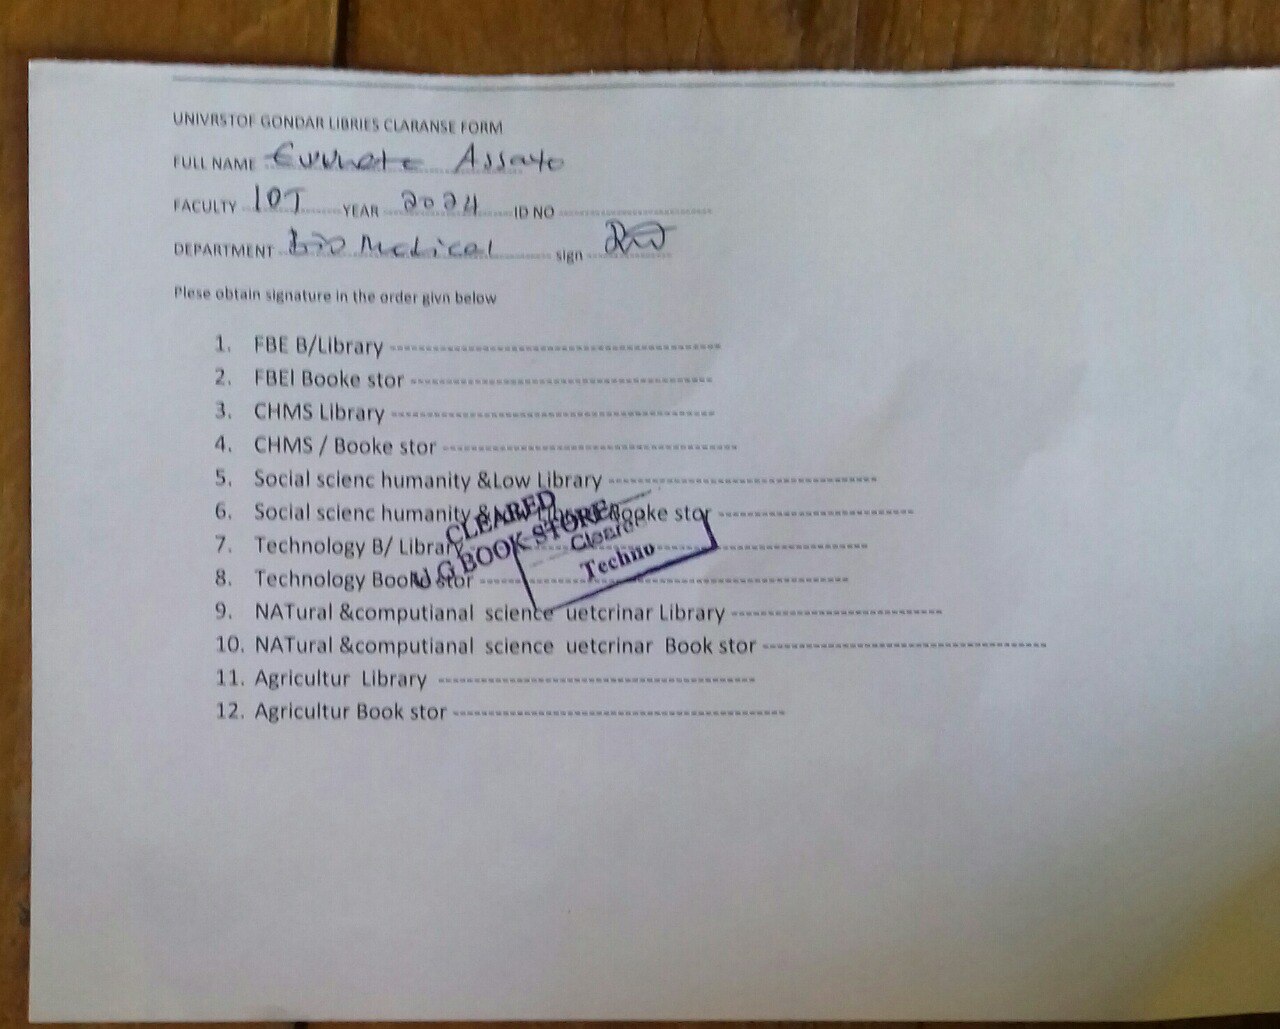 UNIVRSTOF GONDAR LIBRIES CLARANSE FORM
FULL NAME Assayo
FACULTY IOT YEAR 2024 ID NO
DEPARTMENT Bio Medical sign
Plese obtain signature in the order givn below
1. FBE B/Library
2. FBEI Booke stor
3. CHMS Library
4. CHMS / Booke stor
5. Social scienc humanity &Low Library
6. Social scienc humanity Booke stor
7. Technology B/ Library
8. Technology Book stor
9. NATural &computianal science uetcrinar Library
10. NATural &computianal science uetcrinar Book stor
11. Agricultur Library
12. Agricultur Book stor
CLEARED
U G BOOK STORE
Techno